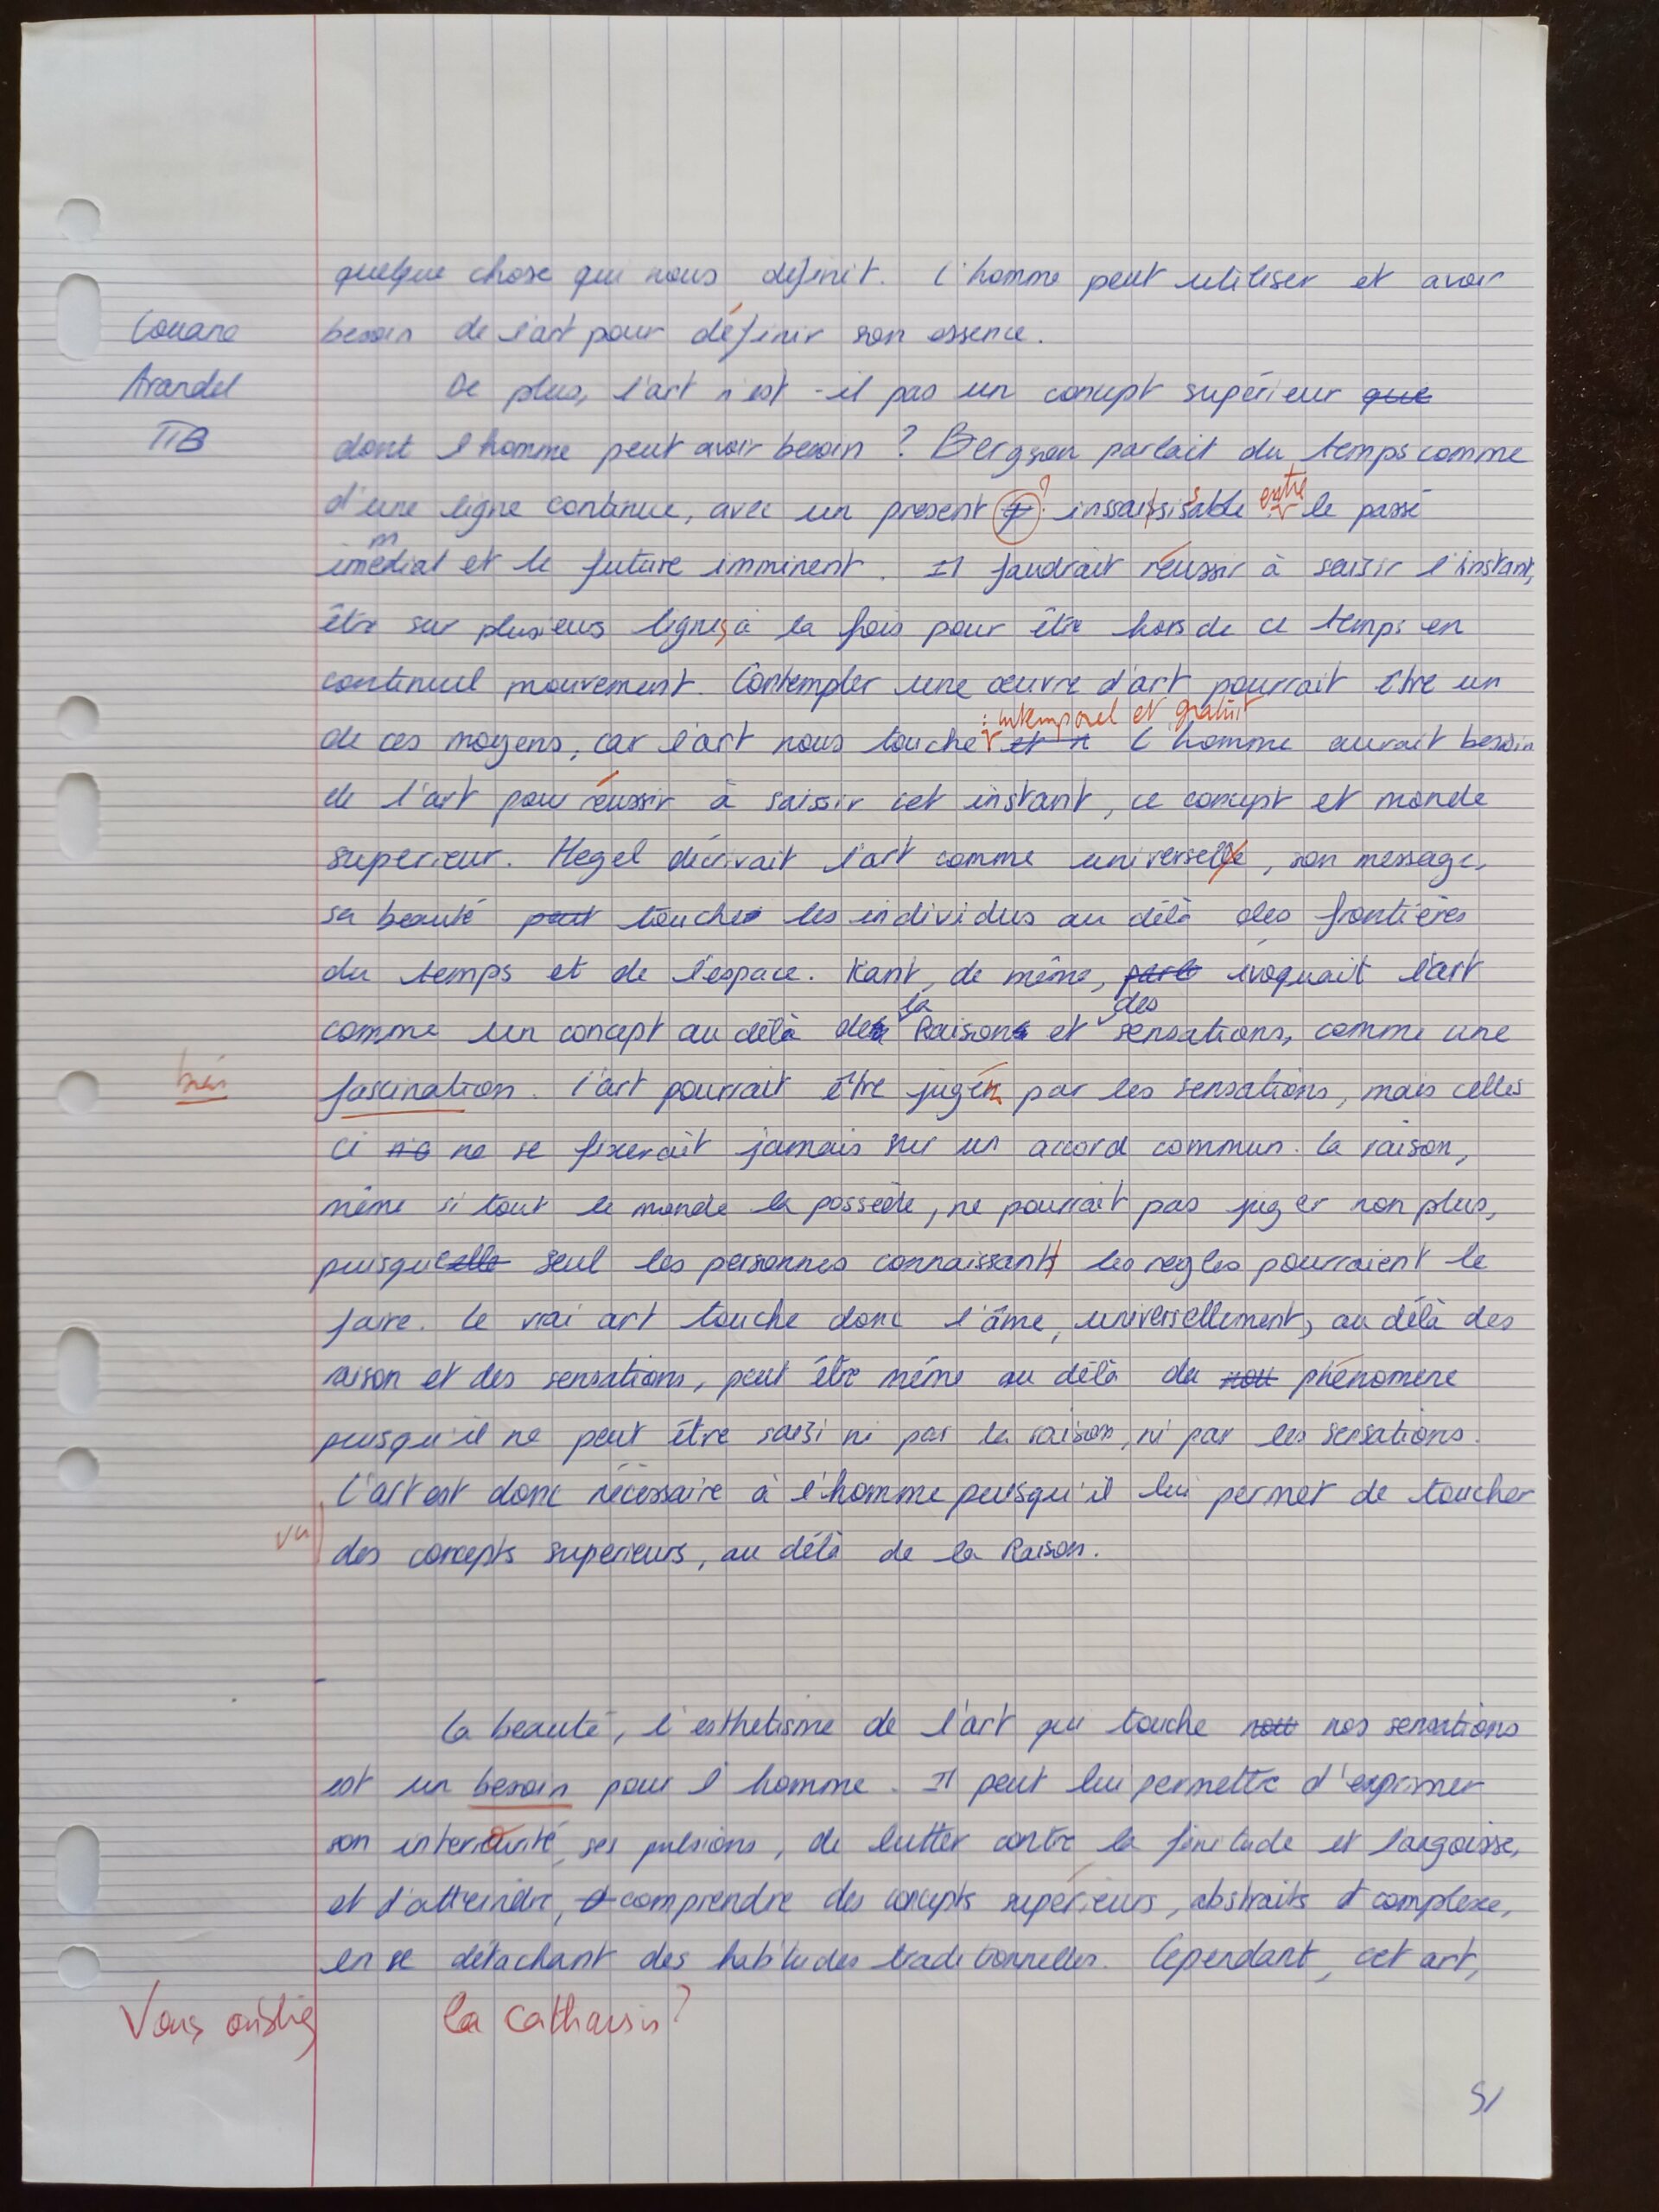 quelque chose qui nous définit. L'homme peut utiliser et avoir
Louane
besoin de l'art pour définir son essence.
Arandel
De plus, l'art n'est-il pas un concept supérieur que
TB
dont l'homme peut avoir besoin ? Bergson parlait du temps comme
d'une ligne continue, avec un present ? inssaisissable entre le passé
immédiat et le future imminent. Il faudrait réussir à saisir l'instant,
être sur plusieurs lignes à la fois pour être hors de ce temps en
continuel mouvement. Contempler une œuvre d'art pourrait être un
: intemporel et gratuit
de ces moyens, car l'art nous touche et n L'homme aurait besoin
de l'art pour réussir à saissir cet instant, ce concept et monde
superieur. Hegel décrivait l'art comme universelle, son message,
sa beauté peut touche les individus au délà des frontières
du temps et de l'espace. Kant, de même, parle évoquait l'art
comme un concept au délà de la Raison et des sensations, comme une
bien
fascination. L'art pourrait être juger par les sensations, mais celles
ci ne se fixerait jamais sur un accord commun. La raison,
même si tout le monde la possède, ne pourrait pas juger non plus,
puisque elle seul les personnes connaissant les regles pourraient le
faire. Le vrai art touche donc l'âme, universellement, au délà des
raison et des sensations, peut être même au délà du nou phénomène
puisqu'il ne peut être saisi ni par la raison, ni par les sensations.
L'art est donc nécessaire à l'homme puisqu'il lui permet de toucher
vu
des concepts superieurs, au délà de la Raison.
La beauté, l'esthetisme de l'art qui touche nou nos sensations
est un besoin pour l'homme. Il peut lui permettre d'exprimer
son interiorité, ses pulsions, de lutter contre la finitude et l'angoisse,
et d'atteindre, et comprendre des concepts supérieurs, abstraits et complexe,
en se détachant des habitudes traditionnelles. Cependant, cet art,
Vous oubliez la catharsis ?
5/